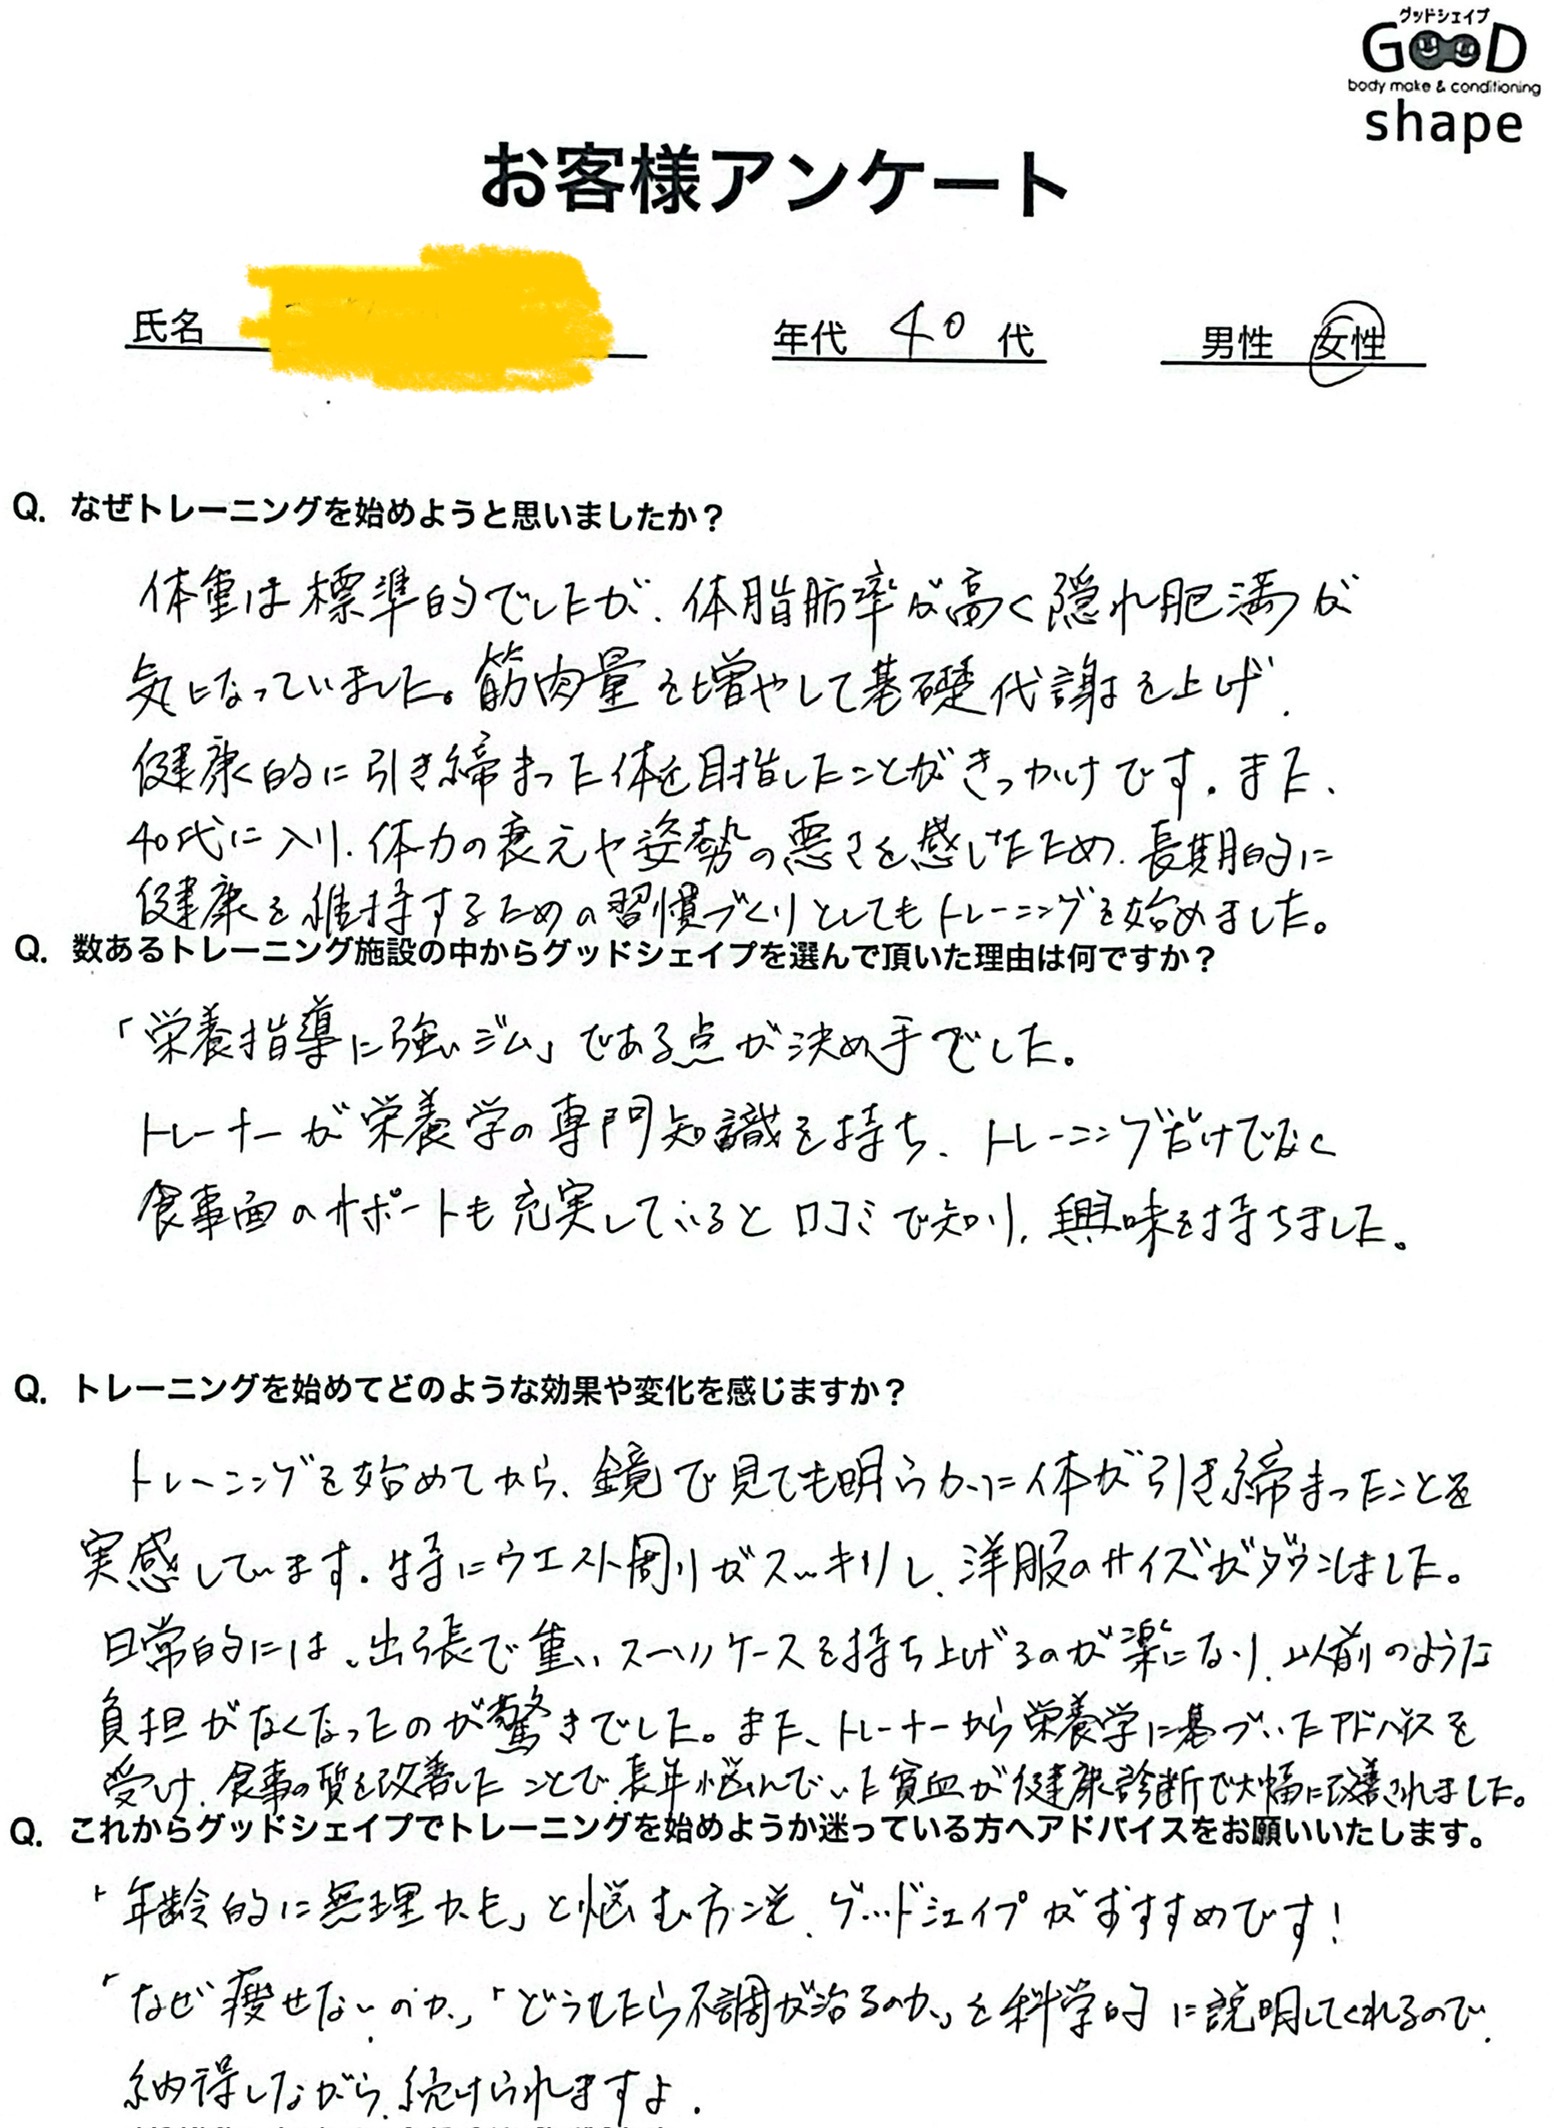 グッドシェイプ
GOOD
body make & conditioning
shape
お客様アンケート
氏名
年代 40 代
男性 女性
Q. なぜトレーニングを始めようと思いましたか？
体重は標準的でしたが、体脂肪率が高く隠れ肥満が
気になっていました。筋肉量を増やして基礎代謝を上げ、
健康的に引き締まった体を目指したことがきっかけです。また、
40代に入り、体力の衰えや姿勢の悪さを感じたため、長期的に
健康を維持するための習慣づくりとしてもトレーニングを始めました。
Q. 数あるトレーニング施設の中からグッドシェイプを選んで頂いた理由は何ですか？
「栄養指導に強いジム」である点が決め手でした。
トレーナーが栄養学の専門知識を持ち、トレーニングだけでなく
食事面のサポートも充実していると口コミで知り、興味を持ちました。
Q. トレーニングを始めてどのような効果や変化を感じますか？
トレーニングを始めてから、鏡で見ても明らかに体が引き締まったことを
実感しています。特にウエスト周りがスッキリし、洋服のサイズがダウンしました。
日常的には、出張で重いスーツケースを持ち上げるのが楽になり、以前のような
負担がなくなったのが驚きでした。また、トレーナーから栄養学に基づいたアドバイスを
受け、食事の質を改善したことで、長年悩んでいた貧血が健康診断で大幅に改善されました。
Q. これからグッドシェイプでトレーニングを始めようか迷っている方へアドバイスをお願いいたします。
「年齢的に無理かも」と悩む方こそ、グッドシェイプがおすすめです！
「なぜ痩せないのか」「どうしたら不調が治るのか」を科学的に説明してくれるので、
納得しながら続けられますよ。